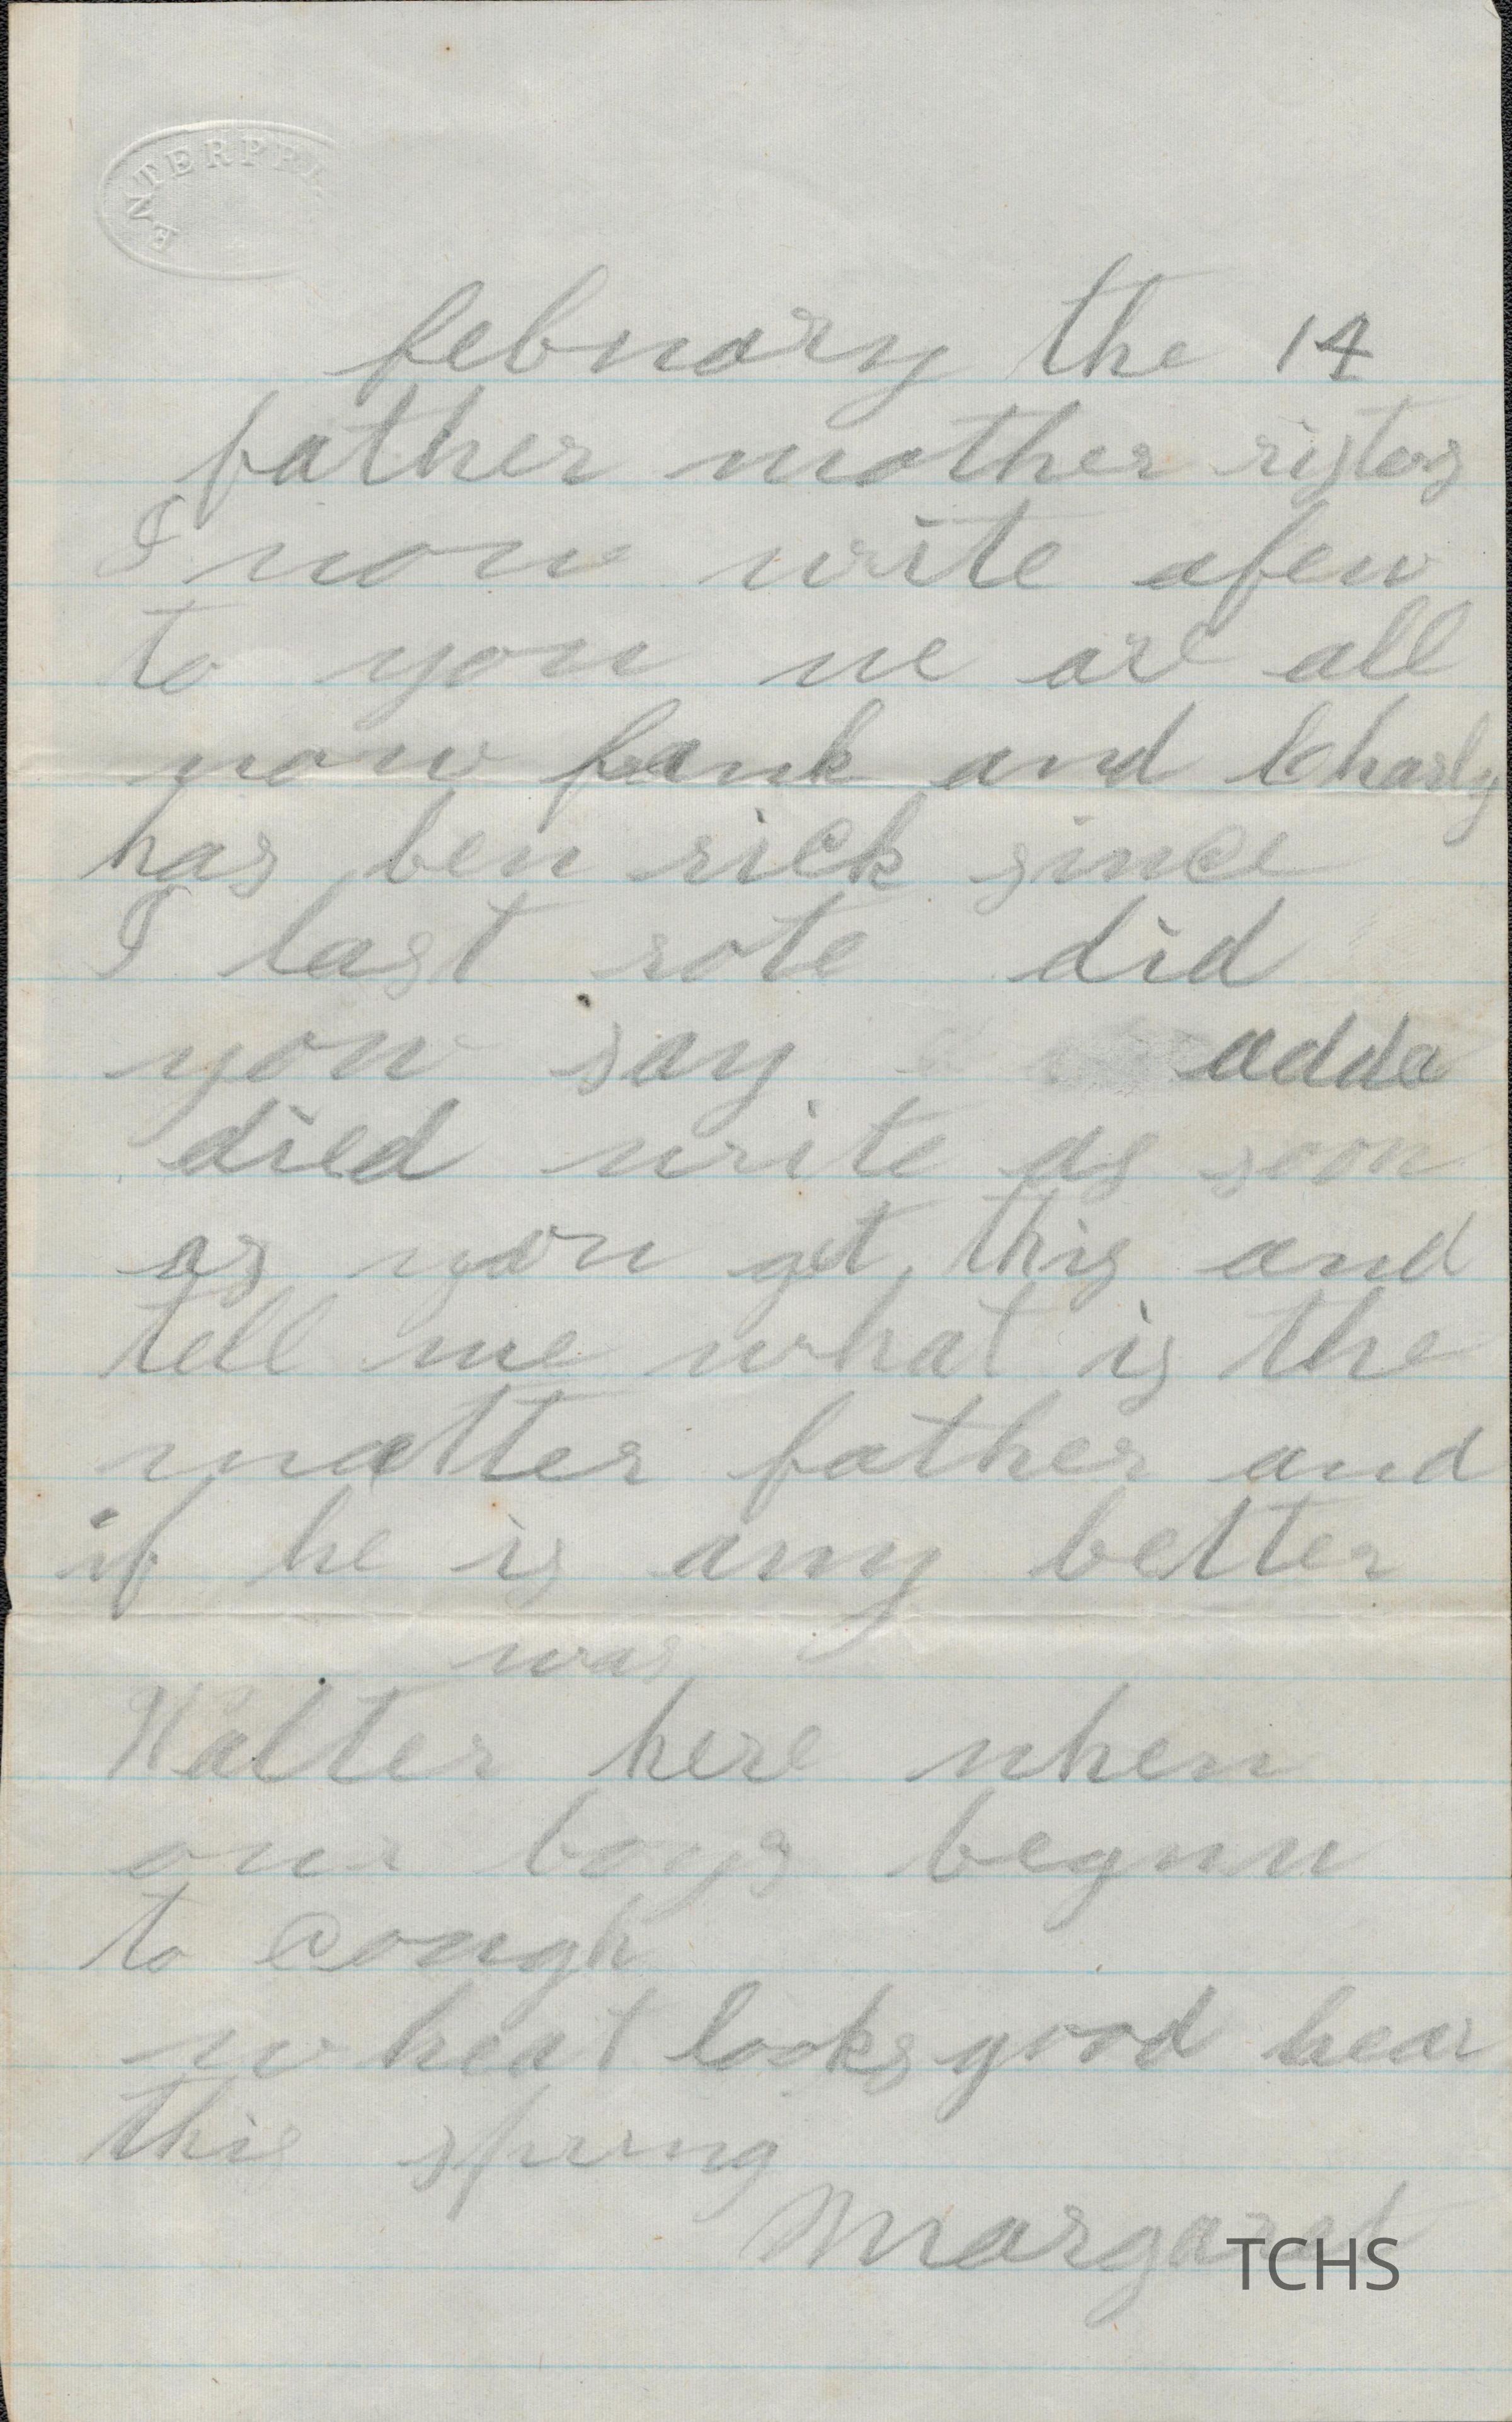 ENTERPRI
febuary the 14
father mother sisters
I now write afew
to you we are all
now frank and Charly
has ben sick since
I last rote did
you say adda
died write as soon
as you get this and
tell me what is the
matter father and
if he is any better
was
Walter here when
our boys begun
to cough
wheat looks good hear
this spring
Margaret
TCHS